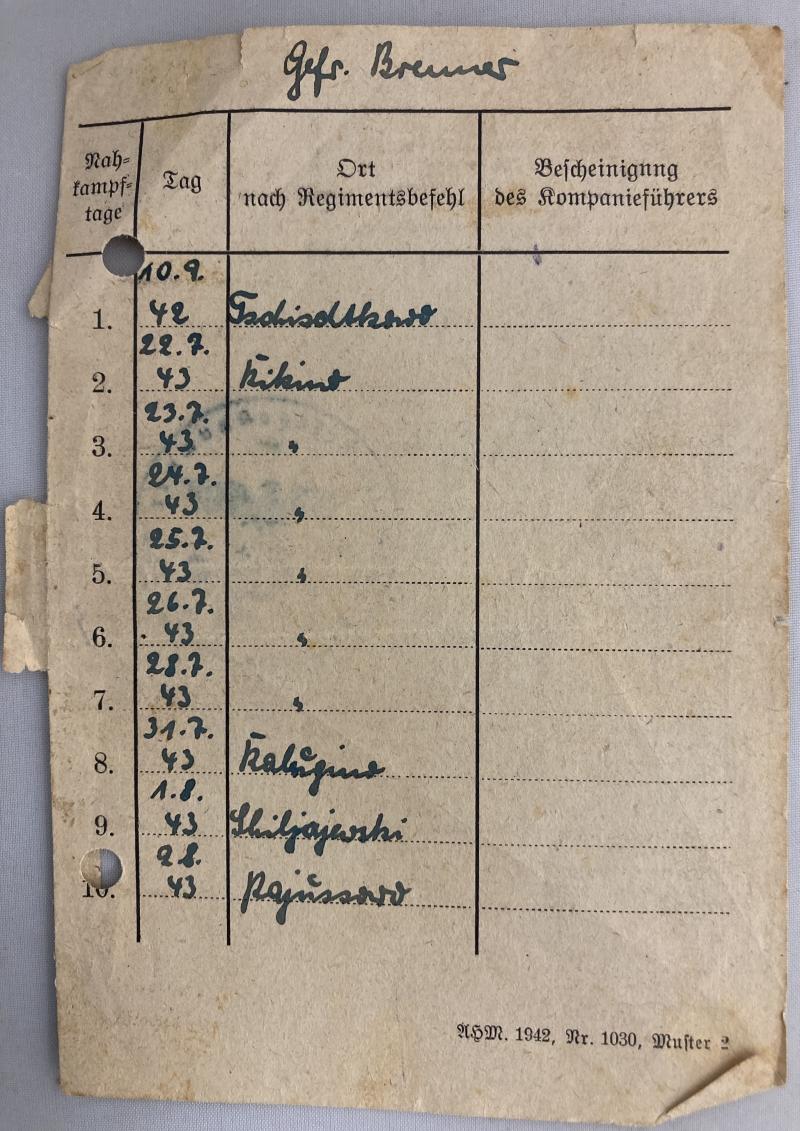 Gefr. Brenner
Nah=
kampf=
tage
Tag
Ort
nach Regimentsbefehl
Bescheinigung
des Kompanieführers
10.9.
1. 42 Tschischtkowo
22.7.
2. 43 Kikino
23.7.
3. 43 "
24.7.
4. 43 "
25.7.
5. 43 "
26.7.
6. 43 "
28.7.
7. 43 "
31.7.
8. 43 Kalugino
1.8.
9. 43
2.8.
10. 43
AHM. 1942, Nr. 1030, Muster 2